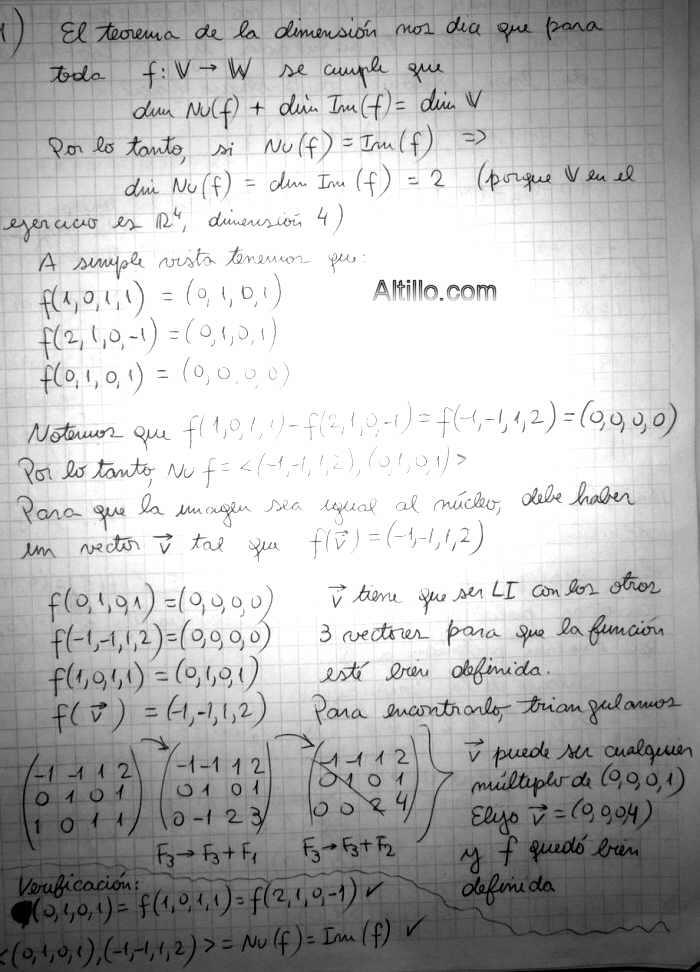 1) El teorema de la dimensión nos dice que para
toda f: V → W se cumple que
dim Nu(f) + dim Im(f) = dim V
Por lo tanto, si Nu(f) = Im(f) ⇒
dim Nu(f) = dim Im(f) = 2 (porque V en el
ejercicio es R⁴, dimensión 4)
A simple vista tenemos que:
f(1,0,1,1) = (0,1,0,1)
Altillo.com
f(2,1,0,-1) = (0,1,0,1)
f(0,1,0,1) = (0,0,0,0)
Notemos que f(1,0,1,1) - f(2,1,0,-1) = f(-1,-1,1,2) = (0,0,0,0)
Por lo tanto, Nu f = <(-1,-1,1,2), (0,1,0,1)>
Para que la imagen sea igual al núcleo, debe haber
un vector v⃗ tal que f(v⃗) = (-1,-1,1,2)
f(0,1,0,1) = (0,0,0,0)
f(-1,-1,1,2) = (0,0,0,0)
f(1,0,1,1) = (0,1,0,1)
f(v⃗) = (-1,-1,1,2)
v⃗ tiene que ser LI con los otros
3 vectores para que la función
esté bien definida.
Para encontrarlo, triangulamos
(-1 -1 1 2) → (-1 -1 1 2) → (-1 -1 1 2)
(0 1 0 1) (0 1 0 1) (0 1 0 1)
(1 0 1 1) (0 -1 2 3) (0 0 2 4)
F₃→F₃+F₁ F₃→F₃+F₂
v⃗ puede ser cualquier
múltiplo de (0,0,0,1)
Elijo v⃗ = (0,0,0,4)
y f quedó bien
definida
Verificación:
(0,1,0,1) = f(1,0,1,1) = f(2,1,0,-1) ✓
<(0,1,0,1), (-1,-1,1,2)> = Nu(f) = Im(f) ✓